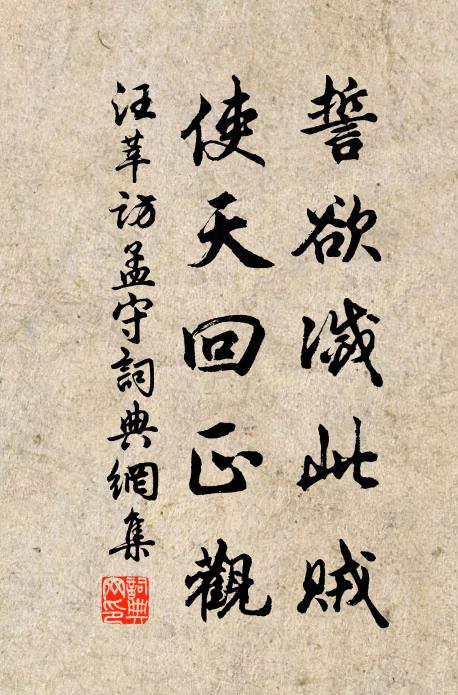 誓欲滅此賊
使天回正觀
汪莘訪孟守詞典網集
詞典
网印